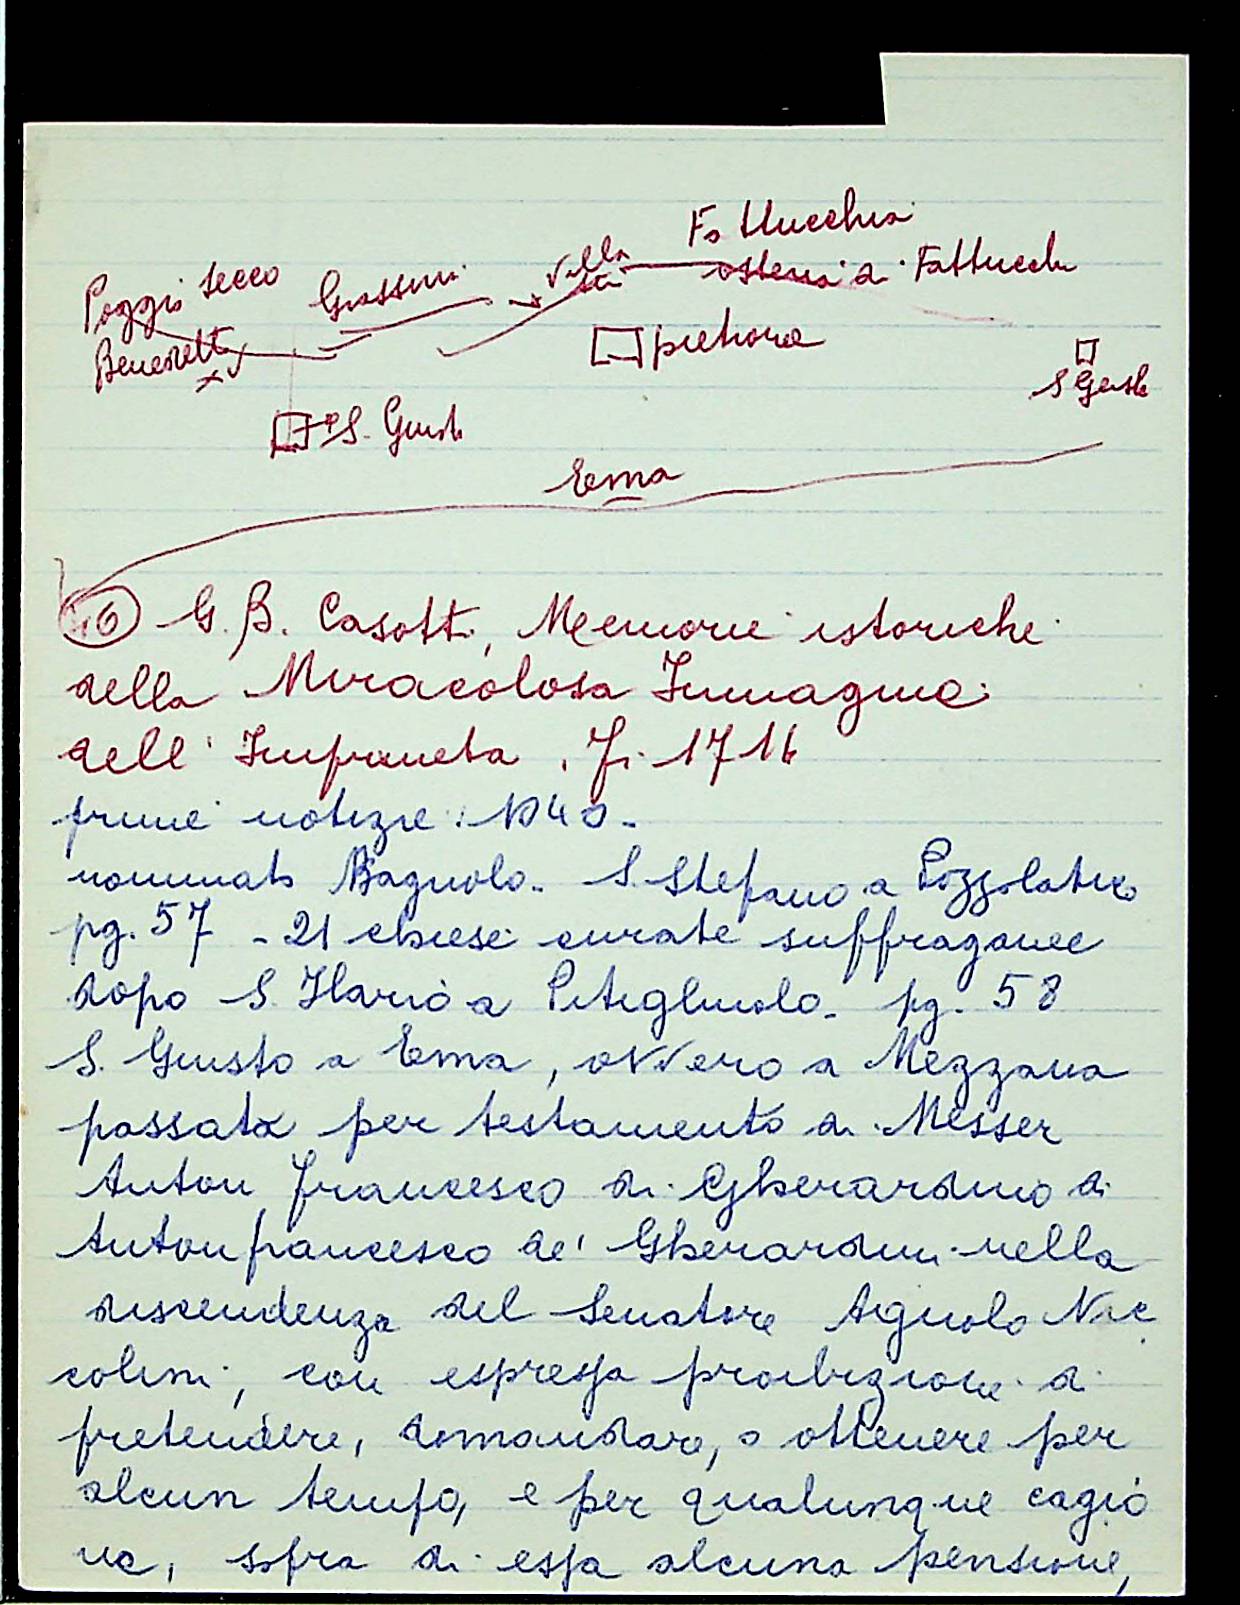 Fattucchia
Poggio secco Grassini Villa osteria di Fattucchi
Benedetti
pietrone
S Giusto
S. Giusto
Ema
G. B. Casotti, Memorie istoriche
della Miracolosa Immagine
dell'Impruneta. Fi. 1716
prime notizie: 1040-
nominato Bagnolo. S. Stefano a Pozzolatico
pg. 57 - 21 chiese curate suffraganee
dopo S. Ilario a Pitigliolo. pg. 58
S. Giusto a Ema, ovvero a Mezzana
passata per testamento di Messer
Anton francesco di Gherardino di
Antonfrancesco de' Gherardini nella
discendenza del Senatore Agnolo Nic
colini, con espressa proibizione di
pretendere, domandare, o ottenere per
alcun tempo, e per qualunque cagio
ne, sopra di essa alcuna pensione,